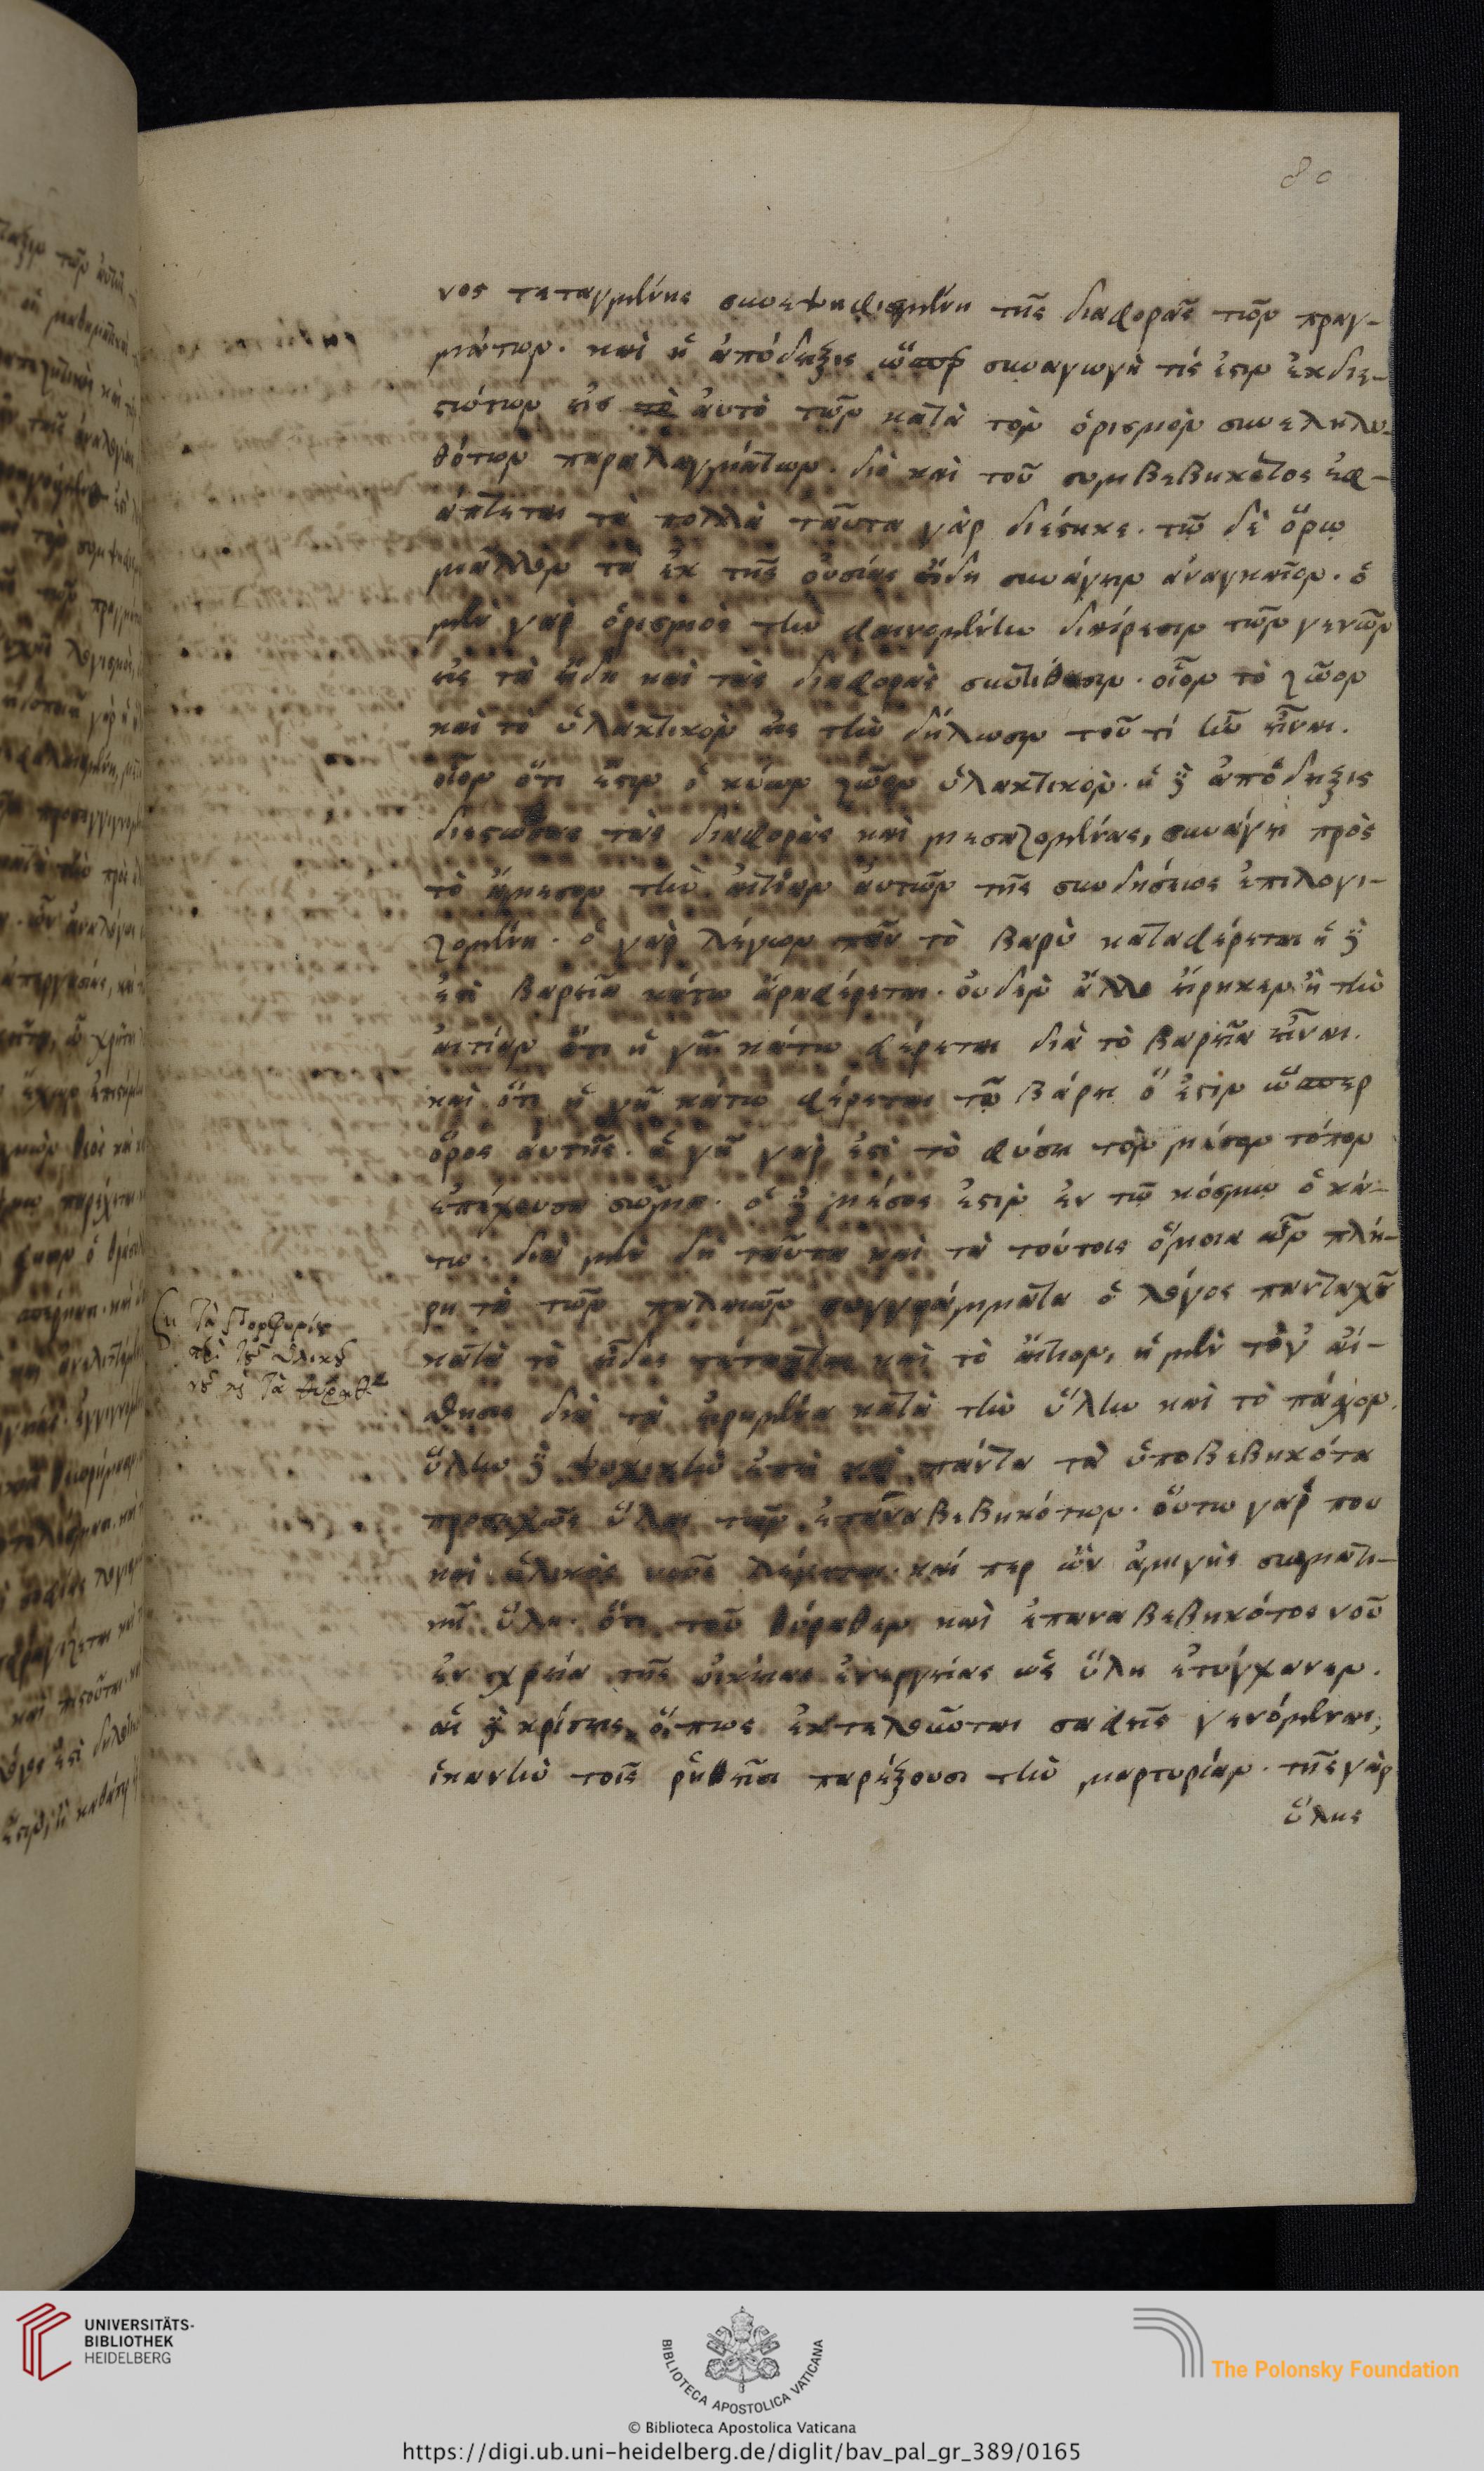 80
νος τεταγμένης συνεψηφισμένη τῆς διαφορᾶς τῶν πραγ-
μάτων. καὶ ἡ ἀπόδειξις ὥσπερ συναγωγή τίς ἐστιν ἐκ διε-
στώτων εἰς τὸ ἀυτὸ τῶν κατὰ τὸν ὁρισμὸν συνεληλυ-
θότων παραλαγμάτων. διὸ καὶ τοῦ συμβεβηκότος ἐφ-
άπτεται τὰ πολλὰ ταῦτα γὰρ διέστηκε. τῷ δὲ ὅρῳ
μᾶλλον τὰ ἐκ τῆς οὐσίας εἴδη συνάγειν ἀναγκαῖον. ὁ
μὲν γὰρ ὁρισμὸς τὴν φαινομένην διαίρεσιν τῶν γενῶν
εἰς τὰ εἴδη καὶ τὰς διαφορὰς συντίθησιν. οἷον τὸ ζῶον
καὶ τὸ ὑλακτικὸν εἰς τὴν δήλωσιν τοῦ τί ἦν εἶναι.
οἷον ὅτι ἔστιν ὁ κύων ζῶον ὑλακτικὸν. ἡ δὲ ἀπόδειξις
διεστώσας τὰς διαφορὰς καὶ μεσαζομένας, συνάγει πρὸς
τὸ ἄμεσον τὴν αἰτίαν ἀυτῶν τῆς συνδήσεως ἐπιλογι-
ζομένη. ὁ γὰρ λέγων πᾶν τὸ βαρὺ καταφέρεται ἡ δὲ
ἐστὶ βαρεῖα κάτω ἄρα φέρεται. οὐδὲν ἄλλο εἴρηκεν ἢ τὴν
αἰτίαν ὅτι ἡ γῆ κάτω φέρεται διὰ τὸ βαρεῖα εἶναι.
καὶ ὅτι ἡ γῆ κάτω φέρεται τῷ βάρει ὅ ἐστιν ὥσπερ
ὅρος ἀυτῆς. ἡ γῆ γὰρ ἐστὶ τὸ φύσει τὸν μέσον τόπον
ἐπέχουσα σῶμα. ὁ δὲ μέσος ἐστὶν ἐν τῷ κόσμῳ ὁ κά-
τω. διὰ μὲν δὴ ταῦτα καὶ τὰ τούτοις ὅμοια ὧν πλή-
ρη τὰ τῶν παλαιῶν συγγράμματα ὁ λόγος πανταχοῦ
κατὰ τὸ εἶδος τέτακται καὶ τὸ αἴτιον, ἡ μὲν τοι αἴ-
σθησις διὰ τὰ εἰρημένα κατὰ τὴν ὕλην καὶ τὸ πάσχον.
ὕλην δὲ ψυχικὴν ἐπεὶ καὶ πάντα τὰ ὑποβεβηκότα
προσεχῶς ὕλαι τῶν ἐπαναβεβηκότων. οὕτω γάρ που
καὶ ὑλικὸς νοῦς λέγεται. καί περ ὢν ἀμιγὴς σωματι-
κῇ ὕλῃ. ὅτι τοῦ θύραθεν καὶ ἐπαναβεβηκότος νοῦ
ἐν χρεία τῆς οἰκείας ἐνεργείας ὡς ὕλη ἐτύγχανεν.
αἱ δὲ κρίσεις ὅπως ἐκτελοῦνται σαφεῖς γενόμεναι,
ἱκανὴν τοῖς ῥηθεῖσι παρέξουσι τὴν μαρτυρίαν. τῆς γὰρ
ὕλης
Τὰ Πορφυρίου
περὶ τοῦ ὑλικοῦ
νοῦ καὶ τὰ θύραθεν
UNIVERSITÄTS-
BIBLIOTHEK
HEIDELBERG
BIBLIOTECA APOSTOLICA VATICANA
The Polonsky Foundation
© Biblioteca Apostolica Vaticana
https://digi.ub.uni-heidelberg.de/diglit/bav_pal_gr_389/0165